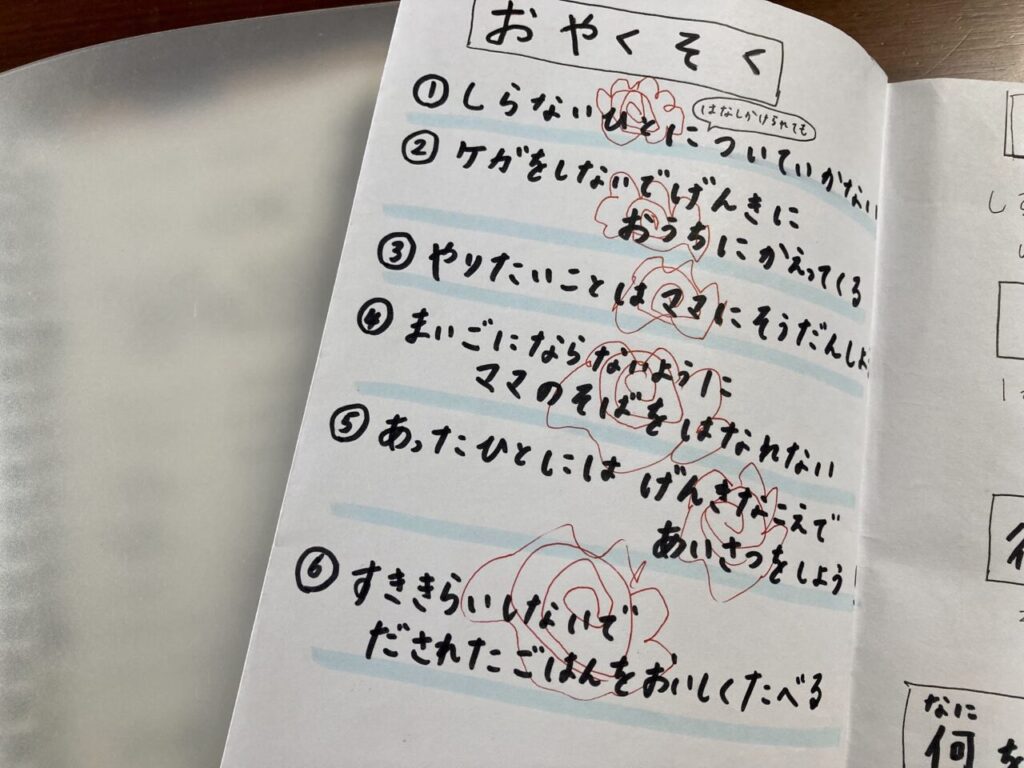 おやくそく
①しらないひとについていかない
はなしかけられても
②ケガをしないでげんきに
おうちにかえってくる
③やりたいことはママにそうだんしよ
④まいごにならないように
ママのそばをはなれない
⑤あったひとにはげんきなこえで
あいさつをしよう!
⑥すききらいしないで
だされたごはんをおいしくたべる
なに
何を